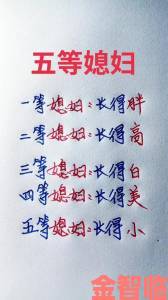 五等媳妇
一等媳妇:长得胖
二等媳妇:长得高
三等媳妇:长得白
四等媳妇:长得美
五等媳妇:长得小
金智收